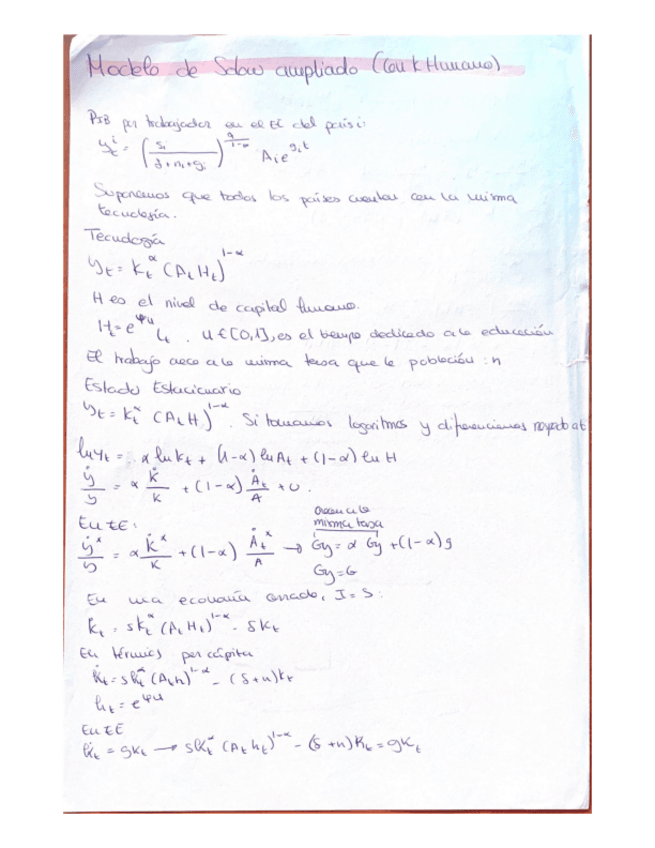 Modelo de Solow ampliado (Con K Humano)
PIB por trabajador en el EE del país i:
y_t^i = (s_i / δ+n_i+g_i)^(α/1-α) A_i e^(g_i t)
Suponemos que todos los países cuentan con la misma
tecnología.
Tecnología
Y_t = K_t^α (A_t H_t)^(1-α)
H es el nivel de capital humano.
H_t = e^(φu) L_t . u ∈ [0,1], es el tiempo dedicado a la educación
El trabajo crece a la misma tasa que la población : n
Estado Estacionario
y_t = k_t^α (A_t H)^(1-α). Si tomamos logaritmos y diferenciamos respecto a t
ln y_t = α ln k_t + (1-α) ln A_t + (1-α) ln H
ẏ/y = α k̇/k + (1-α) Ȧ_t/A + 0.
crecen a la
misma tasa
En EE:
ẏ*/y = α k̇*/k + (1-α) Ȧ_t*/A → Gy = α Gy + (1-α) g
Gy = G
En una economía cerrada, I = S:
k̇_t = s k_t^α (A_t H_t)^(1-α) - δ k_t
En términos per cápita
k̇_t = s k_t^α (A_t h)^(1-α) - (δ+n) k_t
h_t = e^(φu)
En EE
k̇_t = g k_t → s k_t^α (A_t h_t)^(1-α) - (δ+n) k_t = g k_t